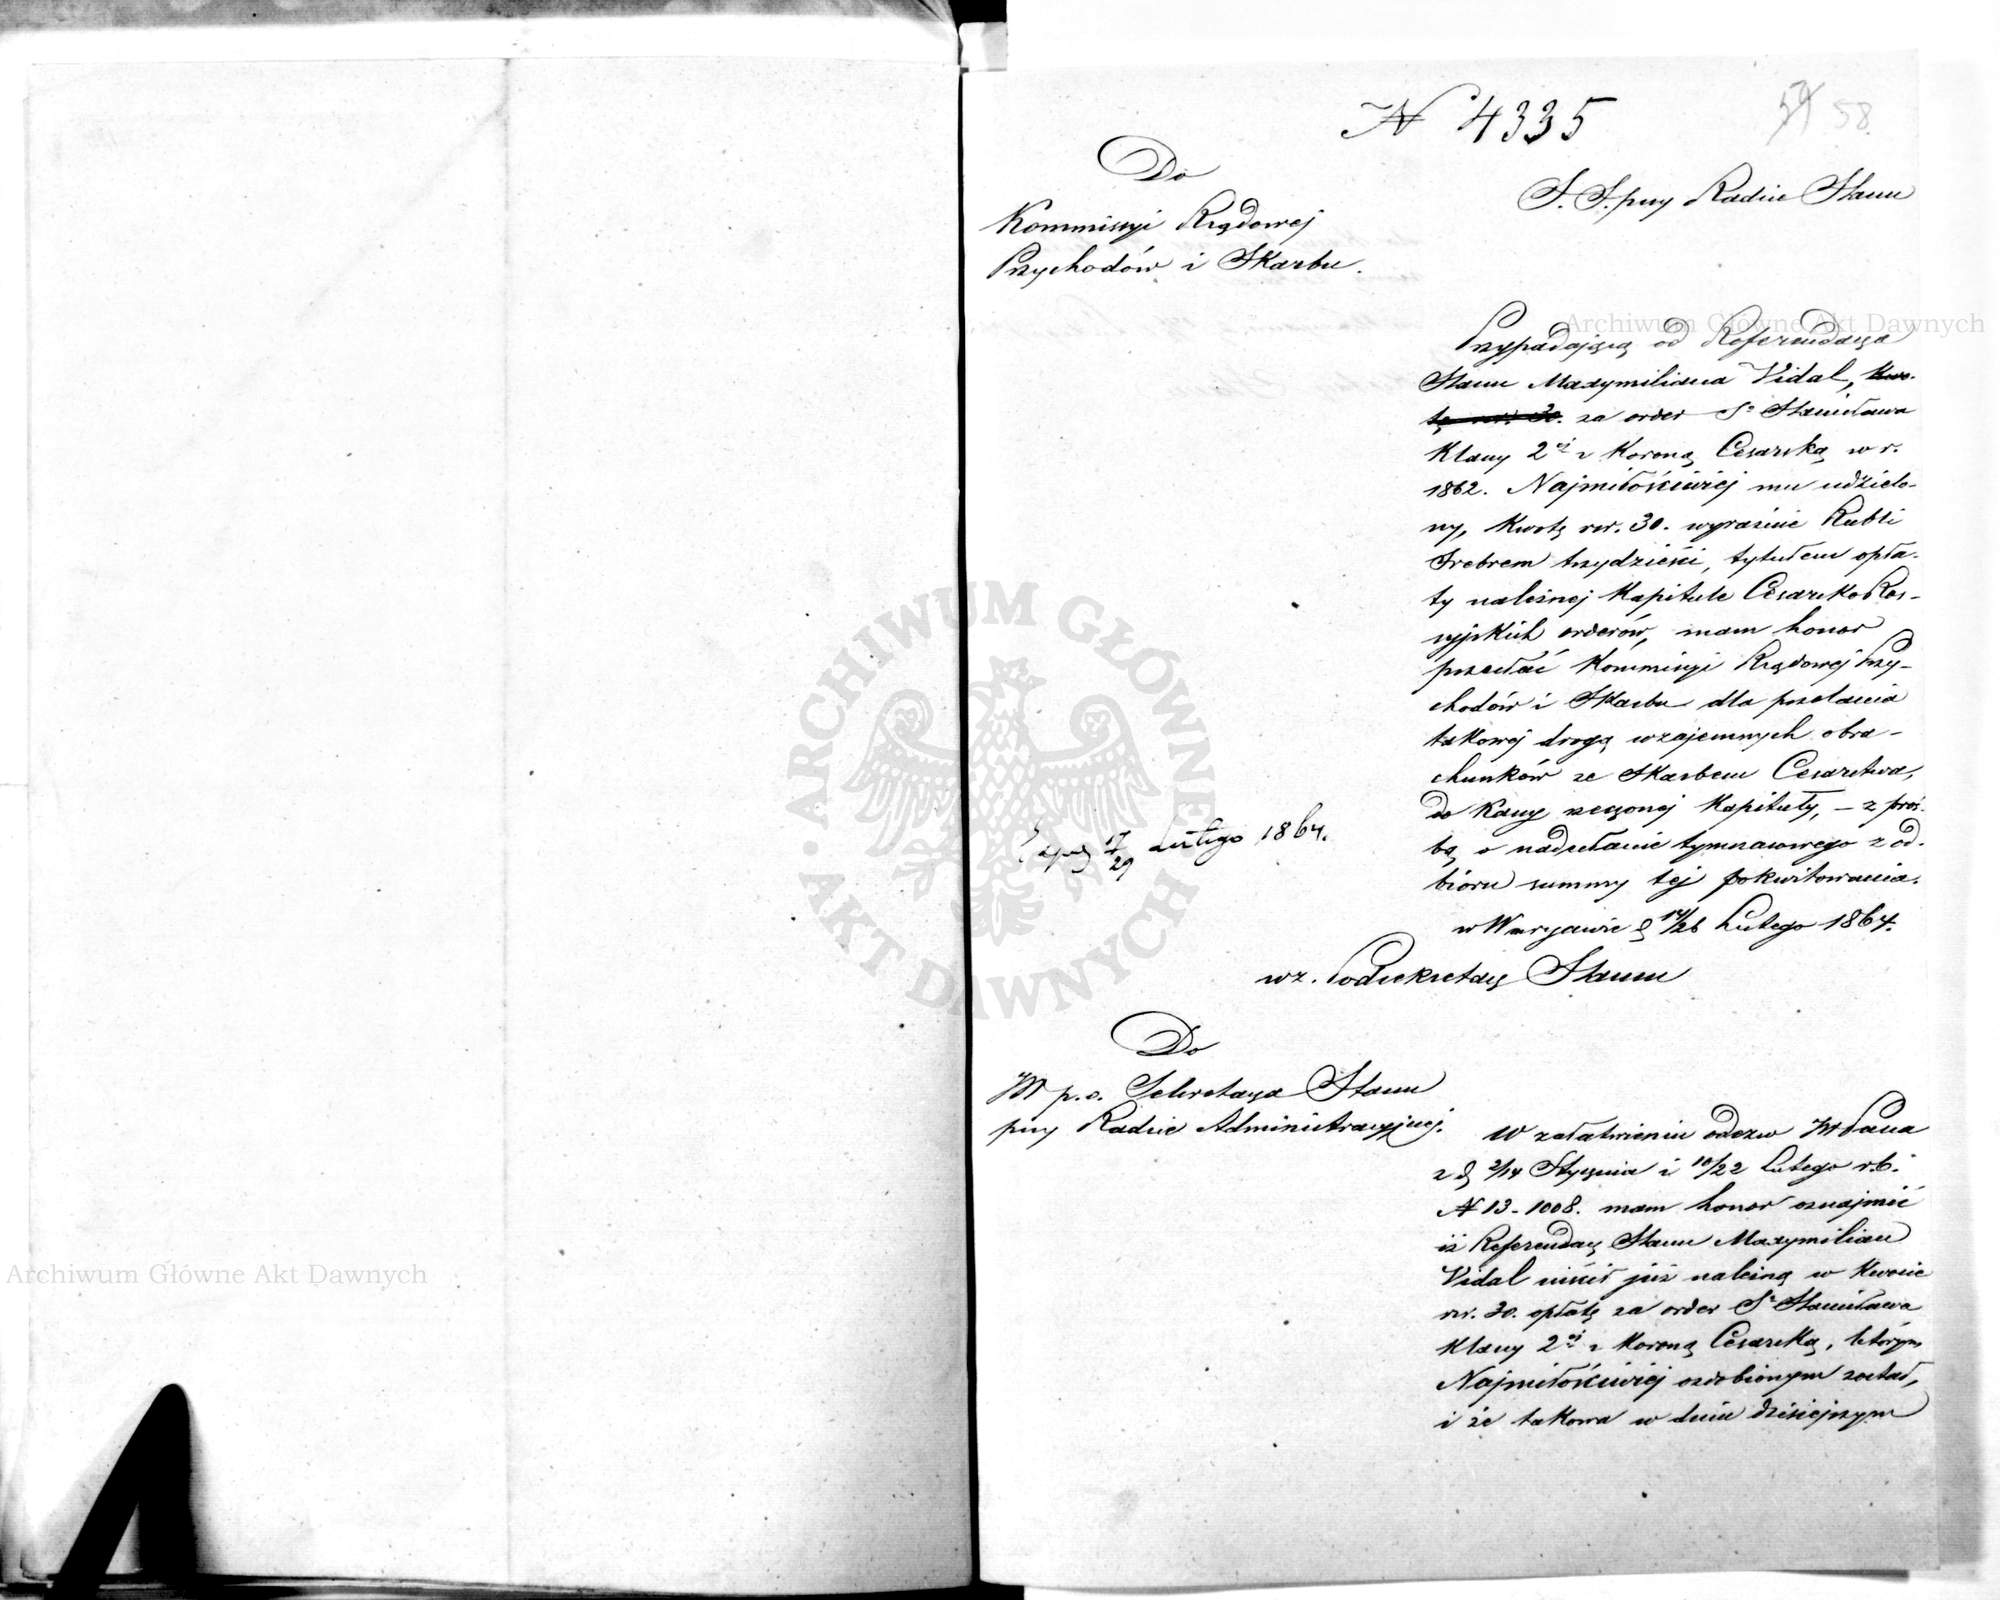 N 4335
57 58.
Do
Kommissyi Rządowej
Przychodów i Skarbu.
S. S. przy Radzie Stanu
Przypadającą od Referendarza
Stanu Maxymiliana Vidal, kwo-
tę rsr. 30. za order Sgo Stanisława
Klassy 2ej z Koroną Cesarską w r.
1862. Najmiłościwiej mu udzielo-
ny, kwotę rsr. 30. wyraźnie Rubli
Srebrem trzydzieści, tytułem opła-
ty należnej Kapitule Cesarsko Ros-
syjskich orderów, mam honor
przesłać Kommissyi Rządowej Przy-
chodów i Skarbu dla przesłania
takowej drogą wzajemnych obra-
chunków ze Skarbem Cesarstwa,
do Kassy rzeczonej Kapituły, – z proś-
bą o nadesłanie tymczasowego z od-
bioru summy tej pokwitowania.
w Warszawie d 14/26 Lutego 1864.
17/29 Lutego 1864.
wz. Podsekretarz Stanu
Do
JW p. o. Sekretarza Stanu
przy Radzie Administracyjnej.
W załatwieniu odezw JW Pana
z d 2/14 Stycznia i 10/22 Lutego r.b.
N 13 - 1008. mam honor oznajmić
iż Referendarz Stanu Maxymilian
Vidal uiścił już należną w kwocie
rsr. 30. opłatę za order Sgo Stanisława
Klassy 2ej z Koroną Cesarską, którym
Najmiłościwiej ozdobionym został,
i że takowa w dniu dzisiejszym
Archiwum Główne Akt Dawnych
Archiwum Główne Akt Dawnych
ARCHIWUM GŁÓWNE AKT DAWNYCH